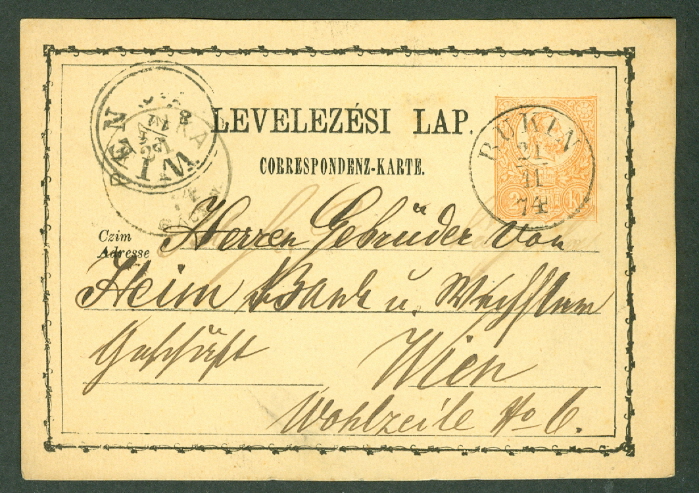 LEVELEZÉSI LAP.
CORRESPONDENZ-KARTE.
RUKIN
21
11
74
WIEN
Czim
Adresse
Herren Gebrüder von
Heim Bank u. Wechslun
Geschäft Wien
Wohlzeile No 6.